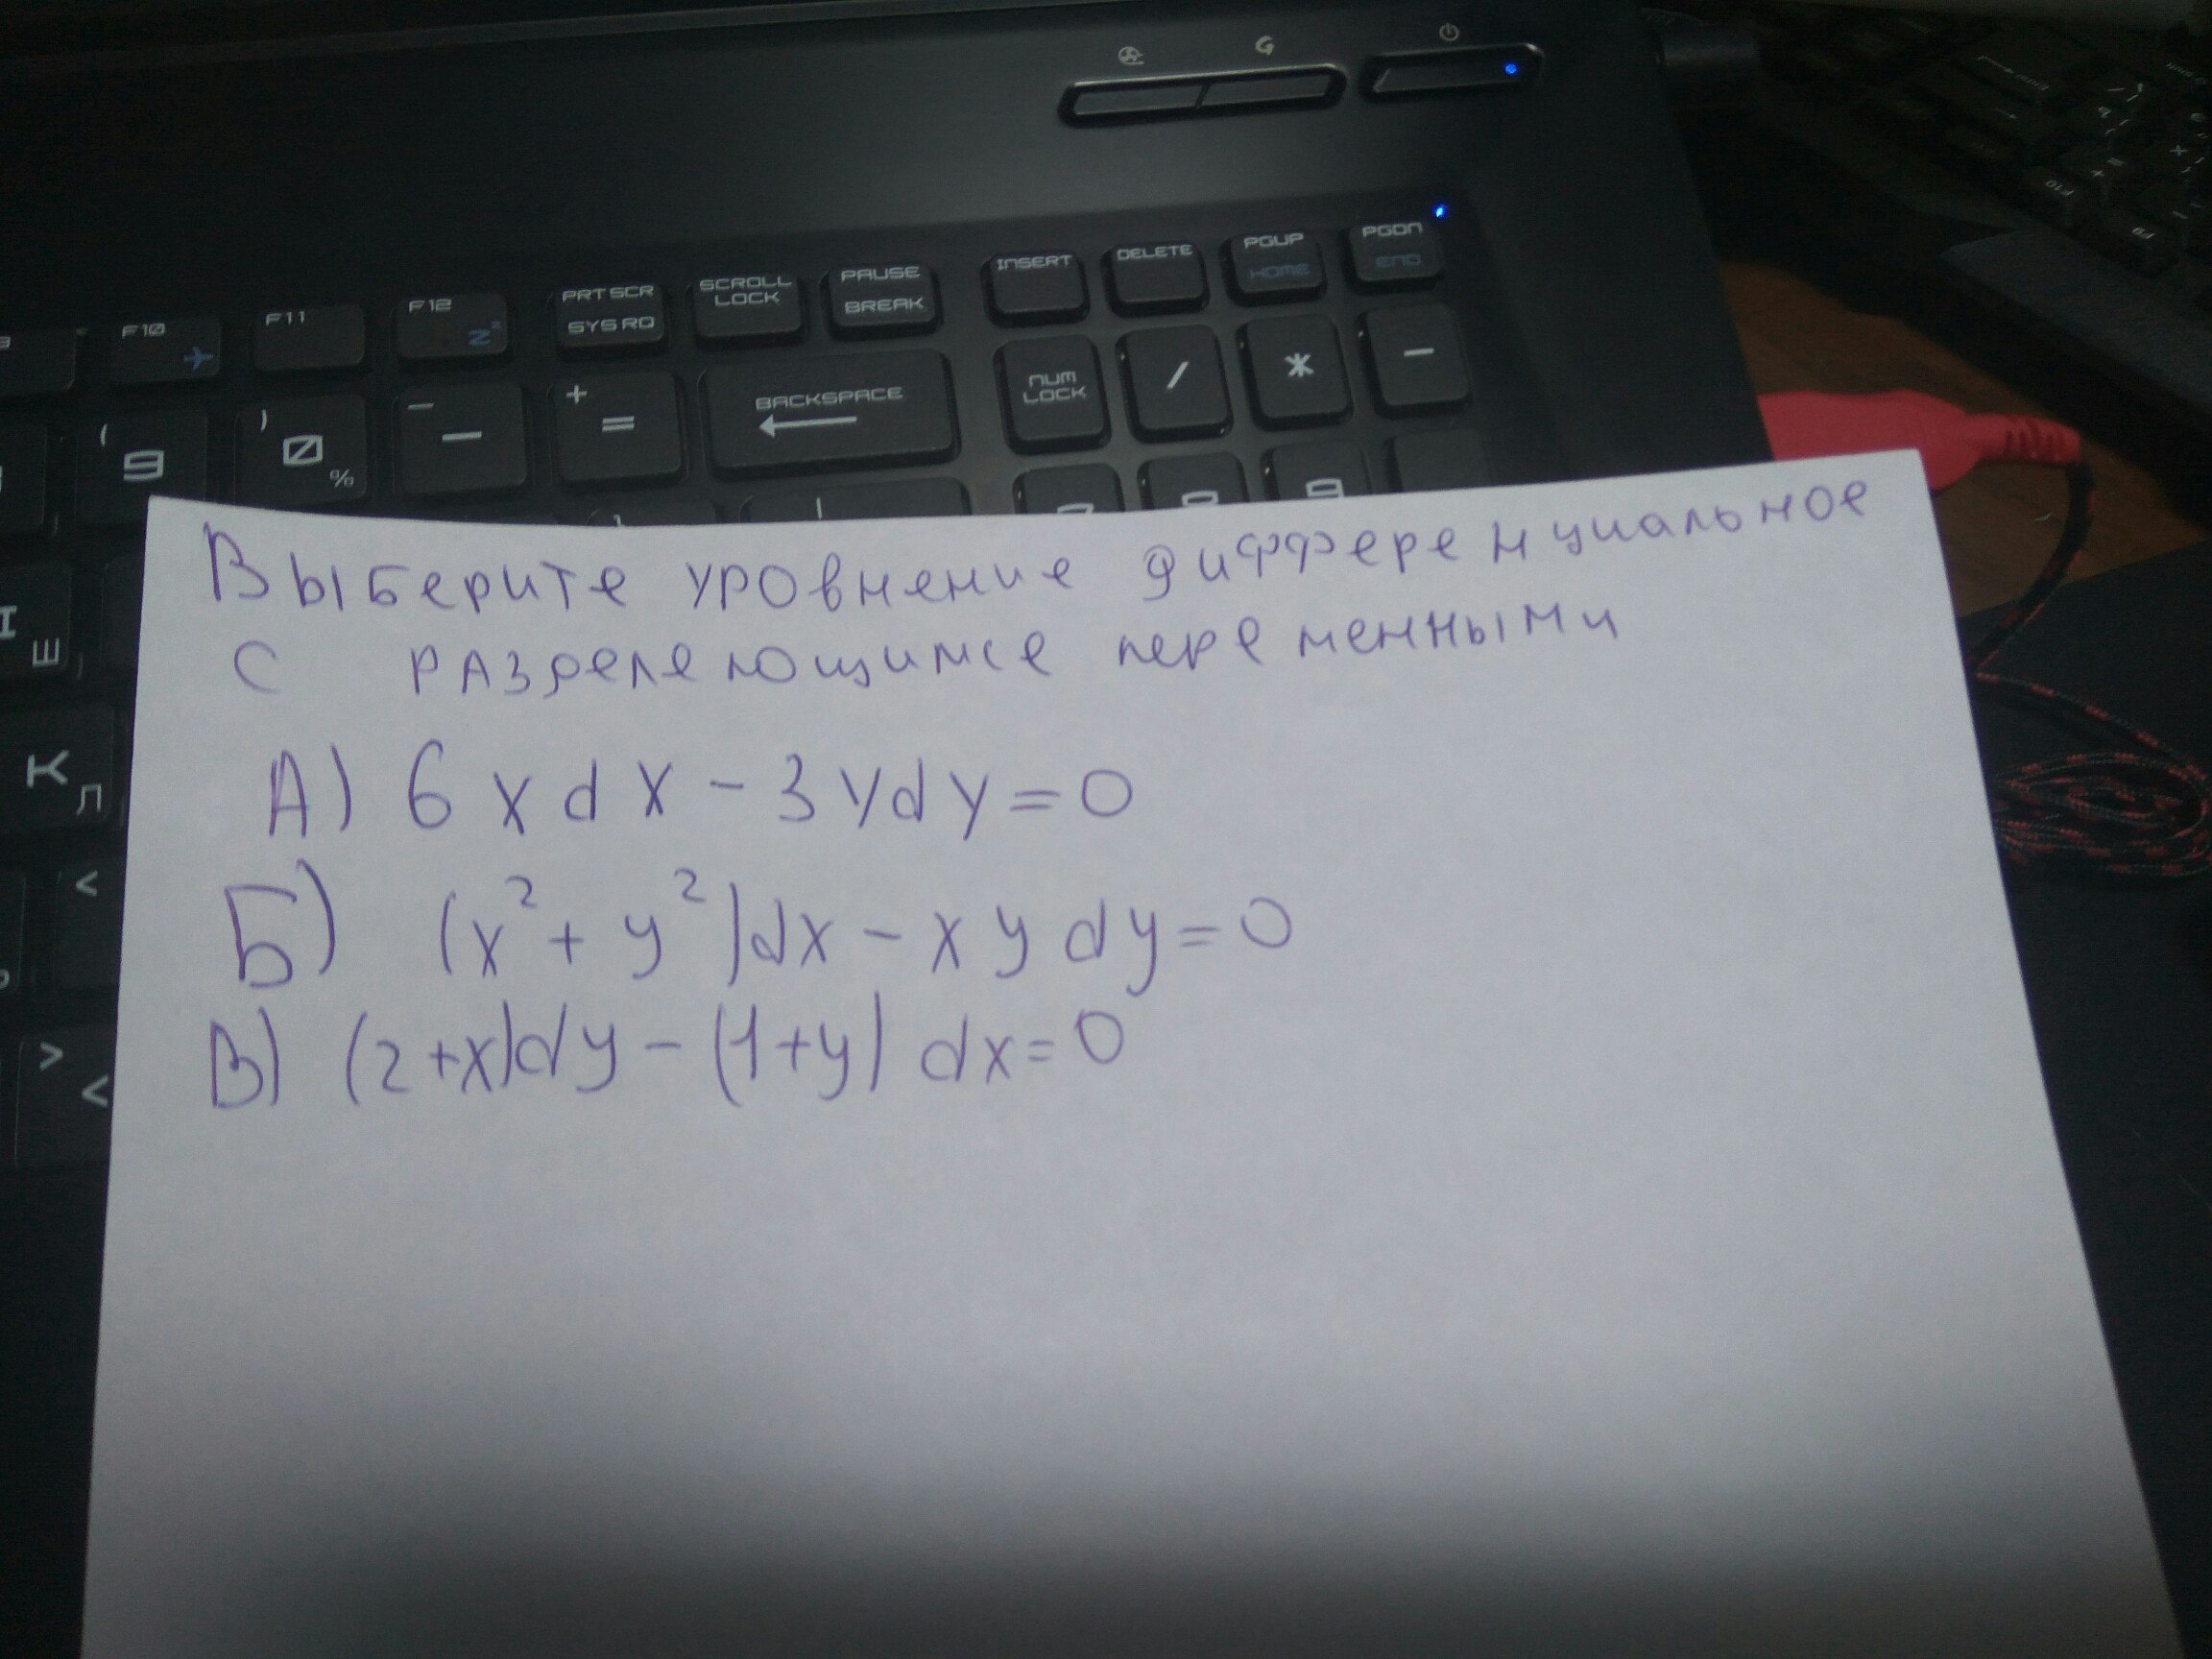 PRT SCR
SYS RQ
SCROLL
LOCK
PAUSE
BREAK
INSERT
DELETE
PGUP
HOME
PGDN
END
F10
F11
F12
Z²
( 9
) 0 %
_ -
+ =
BACKSPACE
NUM
LOCK
/
*
-
9
Ш
К
Л
<
>
<
Выберите уровнение дифференциальное
с разделеющимсе переменными
А) 6xdx - 3ydy = 0
Б) (x² + y²)dx - xy dy = 0
В) (2+x)dy - (1+y) dx = 0